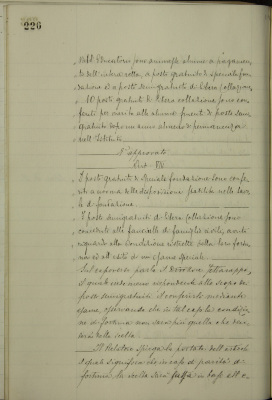 226
"Nell'Educatorio sono ammesse alunne a pagamen-
to dell'intera retta, a posto gratuito di speciale fon-
dazione ed a posto semigratuito di libera collazione.
"I posti gratuiti di libera collazione sono con-
feriti per merito alle alunne fruenti di posto semi-
gratuito dopo un anno almeno di permanenza
nell'Istituto
È approvato
Art. IV
"I posti gratuiti di privata fondazione sono confe-
riti a norma delle disposizioni stabilite nelle tavo-
le di fondazione.
"I posti semigratuiti di libera collazione sono
conceduti alle fanciulle di famiglie civili, avuto
riguardo alla condizione ristretta della loro fortu-
na ed all'esito di un esame speciale.
Sul capoverso parla il Senatore
il quale crede non rispondente allo scopo dei
posti semigratuiti il conferirli mediante
esame, osservando che in tal caso la condizio-
ne di fortuna non sarà più quella che deci-
derà della scelta.
Il Relatore spiega la portata dell'articolo
il quale significa che in caso di parità di
fortuna, la scelta sarà fatta in base all'e-